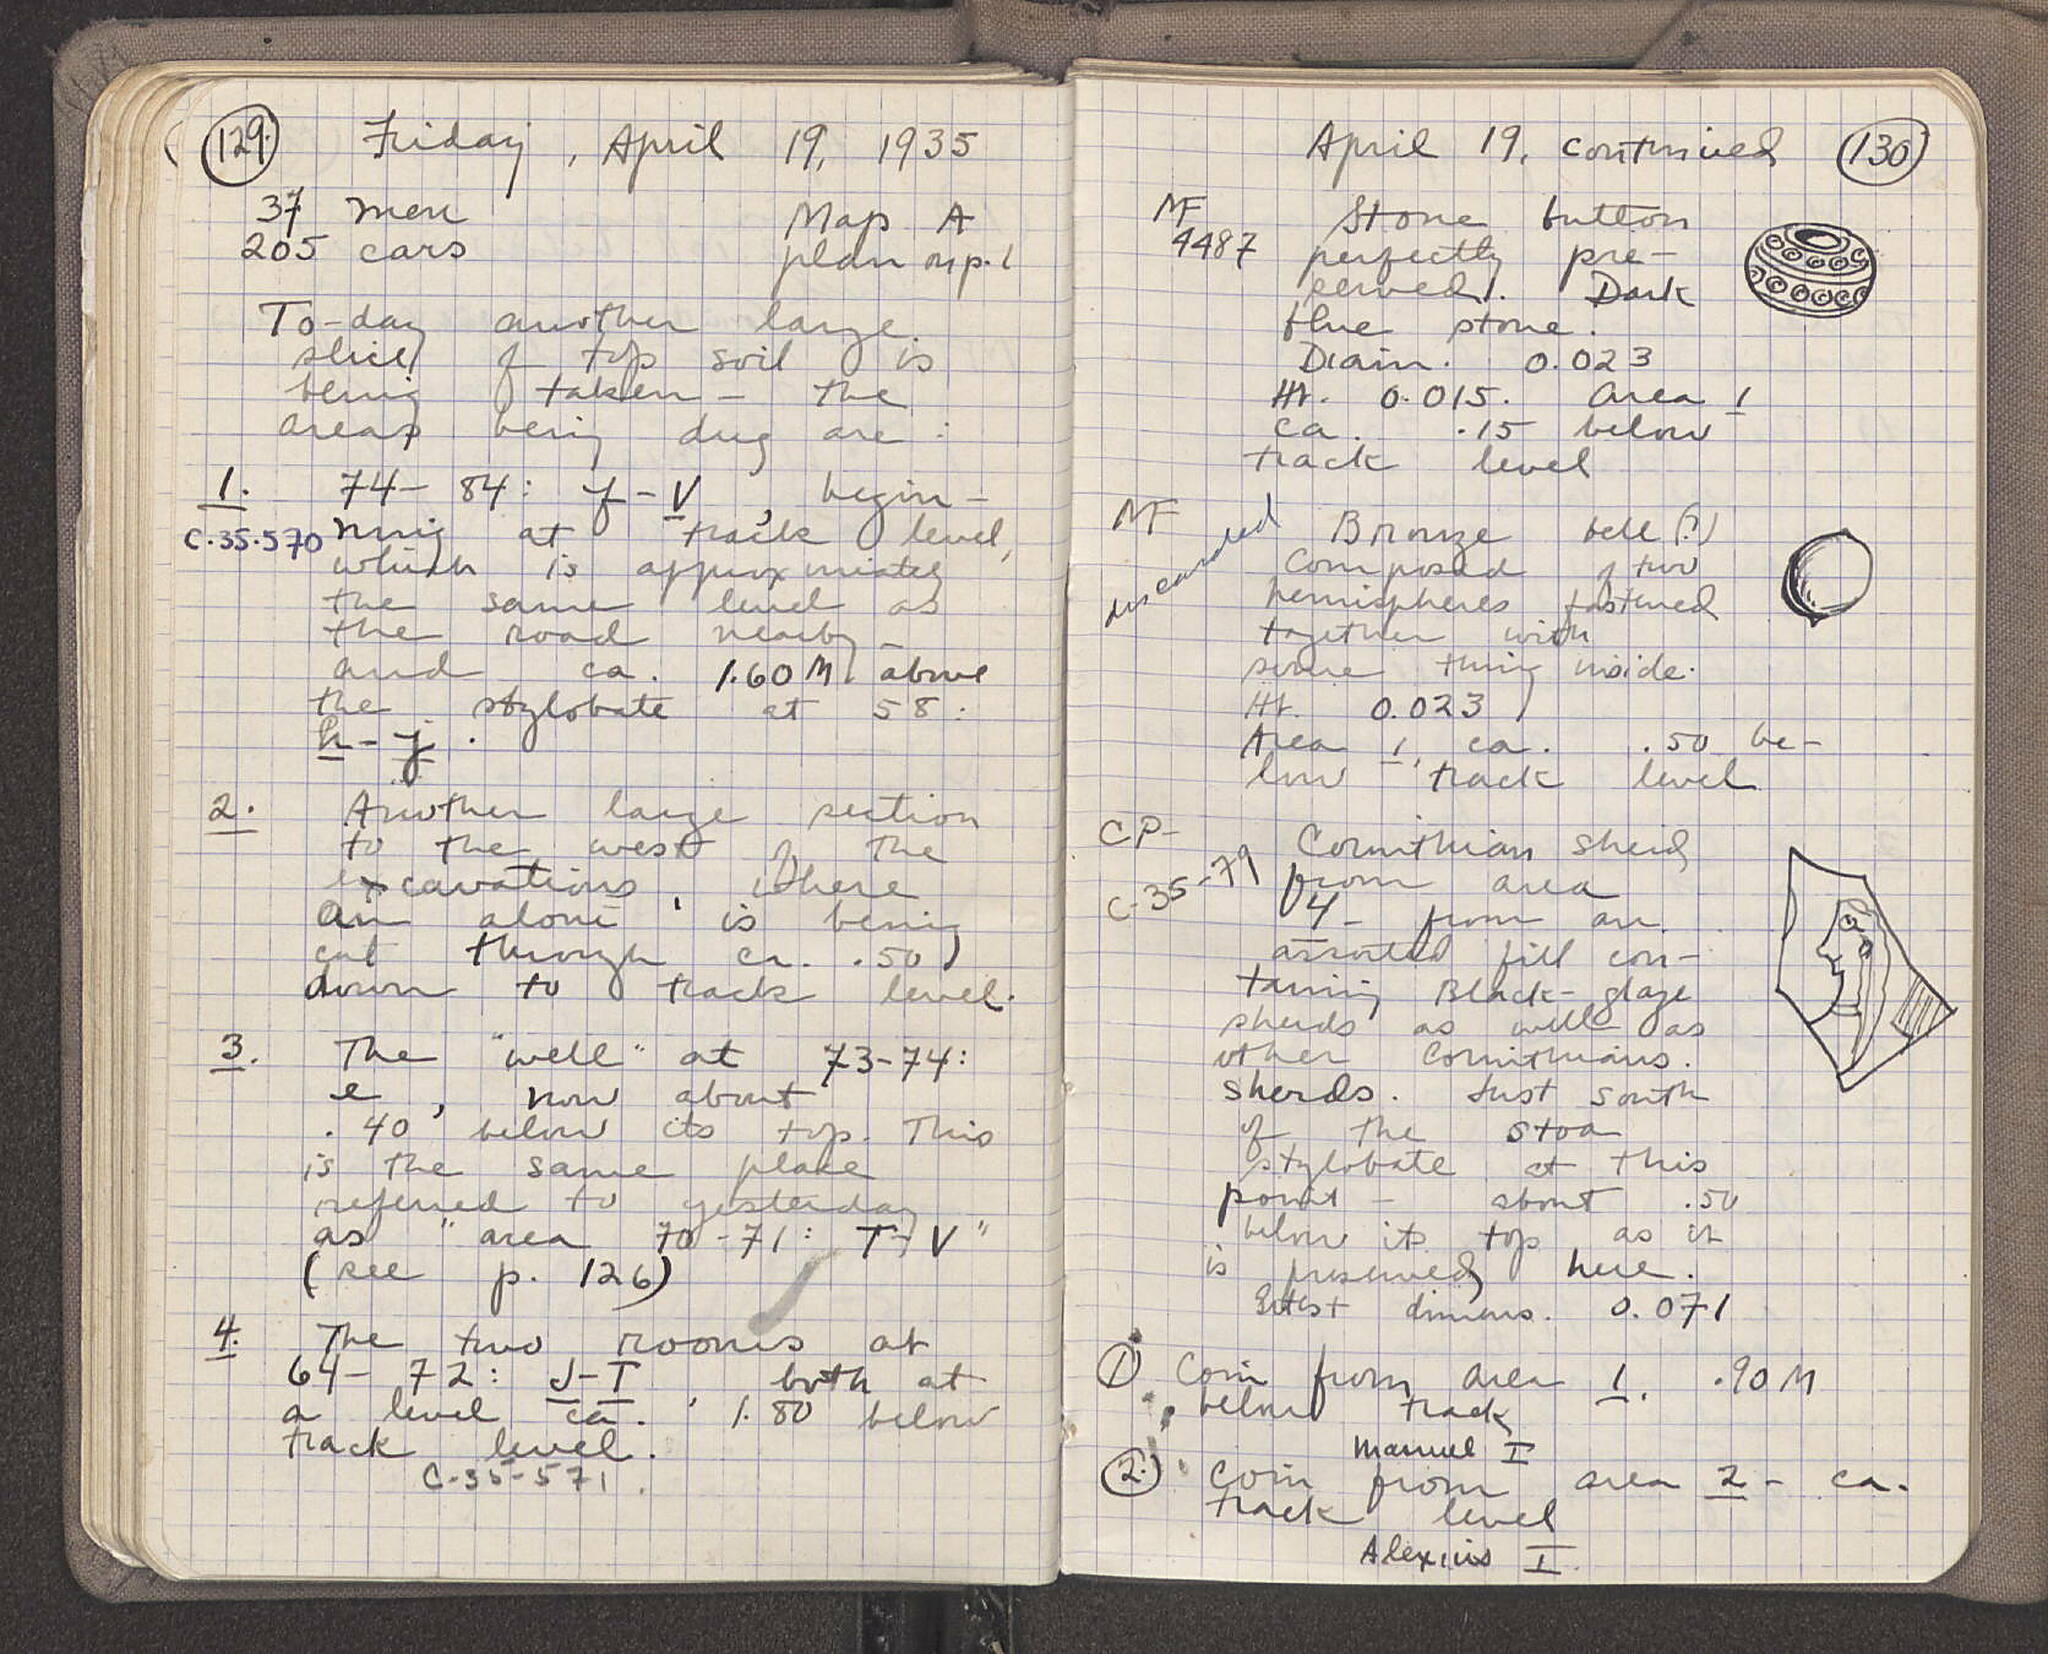 129.
Friday, April 19, 1935
37 men Map A
205 cars plan on p. 1
To-day another large
slice of top soil is
being taken - the
areas being dug are:
1. 74-84: f-V, begin-
C.35.570 ning at track level,
which is approximately
the same level as
the road nearby -
and ca. 1.60 M. above
the stylobate at 58:
h-j.
2. Another large section
to the west of the
excavations, where
an aloni is being
cut through ca. .50
down to track level.
3. The "well" at 73-74:
e, now about
.40 below its top. This
is the same place
referred to yesterday
as "area 70-71: T-V"
(see p. 126)
4. The two rooms at
64-72: J-T, both at
a level ca. 1.80 below
track level.
C-35-571.
April 19, continued 130
MF Stone button
4487 perfectly pre-
served. Dark
blue stone.
Diam. 0.023
Ht. 0.015. Area 1
ca. .15 below
track level
MF Bronze bell (?)
discarded composed of two
hemispheres fastened
together with
some thing inside.
Ht. 0.023
Area 1, ca. .50 be-
low track level
CP- Corinthian sherd
C-35-79 from area
4 - from an
assorted fill con-
taining Black-glaze
sherds as well as
other Corinthians.
sherds. Just south
of the stoa
stylobate at this
point - about .50
below its top as it
is preserved here.
Gr'test dimens. 0.071
1 Coin from area 1. .90 M
below track
Manuel I
2. Coin from area 2 - ca.
track level
Alexius I